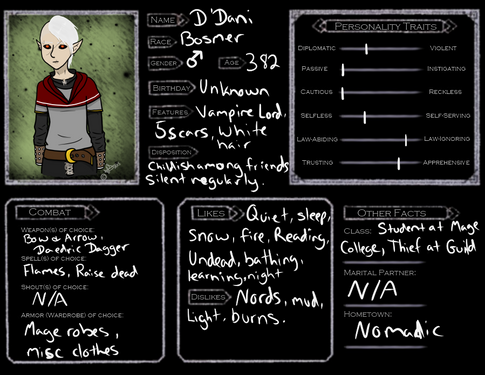 Name D'Dani
Race Bosmer
Gender ♂ Age 382
Birthday Unknown
Features Vampire Lord,
5 scars, White
hair
Disposition
childish among friends
silent regularly.
Personality Traits
Diplomatic Violent
Passive Instigating
Cautious Reckless
Selfless Self-Serving
Law-Abiding Law-Ignoring
Trusting Apprehensive
Combat
Weapon(s) of choice:
Bow & Arrow,
Daedric Dagger
Spell(s) of choice:
Flames, Raise dead
Shout(s) of choice:
N/A
Armor (Wardrobe) of choice:
Mage robes,
misc clothes
Likes Quiet, sleep,
Snow, fire, Reading,
Undead, bathing,
learning, night
Dislikes Nords, mud,
Light, burns.
Other Facts
Class: Student at Mage
College, Thief at Guild
Marital Partner:
N/A
Hometown:
Nomadic